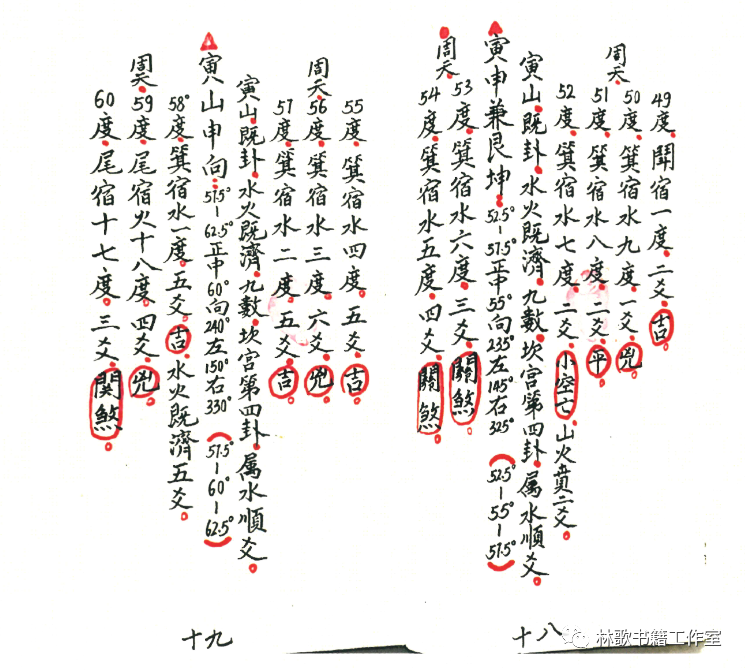 49度.鬥宿一度.二爻.吉
周天.
50度.箕宿水九度.一爻.兇
51度.箕宿水八度.二爻.平
52度.箕宿水七度.二爻.小空亡.山火賁二爻.
寅山.既卦.水火既濟.九數.坎宮第四卦.属水順爻.
寅申兼艮坤.52.5°-57.5°正中55°向235°左145°右325°(52.5°-55-57.5°)
周天.
53度.箕宿水六度.三爻.關煞
54度.箕宿水五度.四爻.關煞
十八
55度.箕宿水四度.五爻.吉
周天.56度.箕宿水三度.六爻.兇
57度.箕宿水二度.五爻.吉
寅山.既卦.水火既濟.九數.坎宮第四卦.属水順爻.
寅山申向.57.5°-62.5°正中60°向240°左150°右330°(57.5°-60°-62.5°)
58°度.箕宿水一度.五爻.吉.水火既濟五爻.
周天.59度.尾宿火十八度.四爻.兇
60度.尾宿十七度.三爻.関煞
十九
林歌书籍工作室